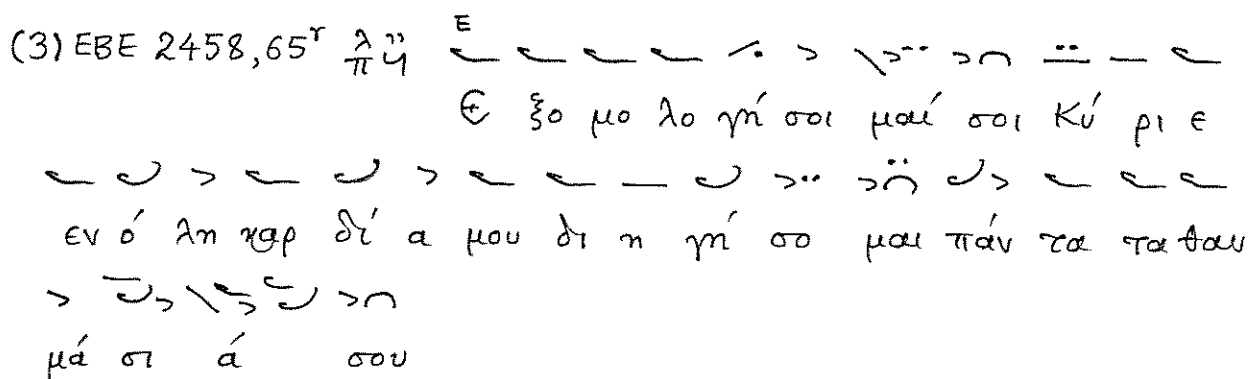 (3) EBE 2458, 65ʳ λ/π ӵ E
Ε ξο μο λο γή σοι μαί σοι Κύ ρι ε
εν ό λη καρ δί α μου δι η γή σο μαι πάν τα τα θαυ
μά σι ά σου